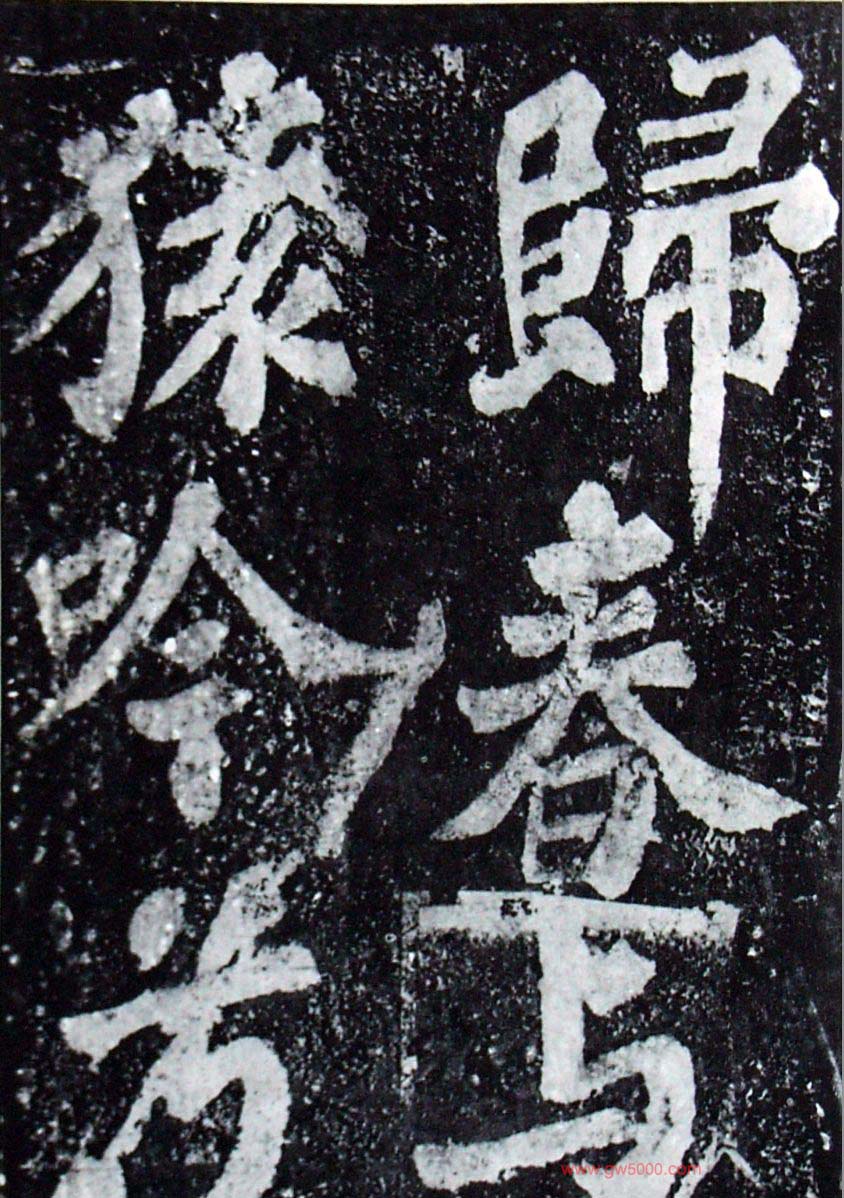 歸春与
猿吟兮
www.gw5000.com